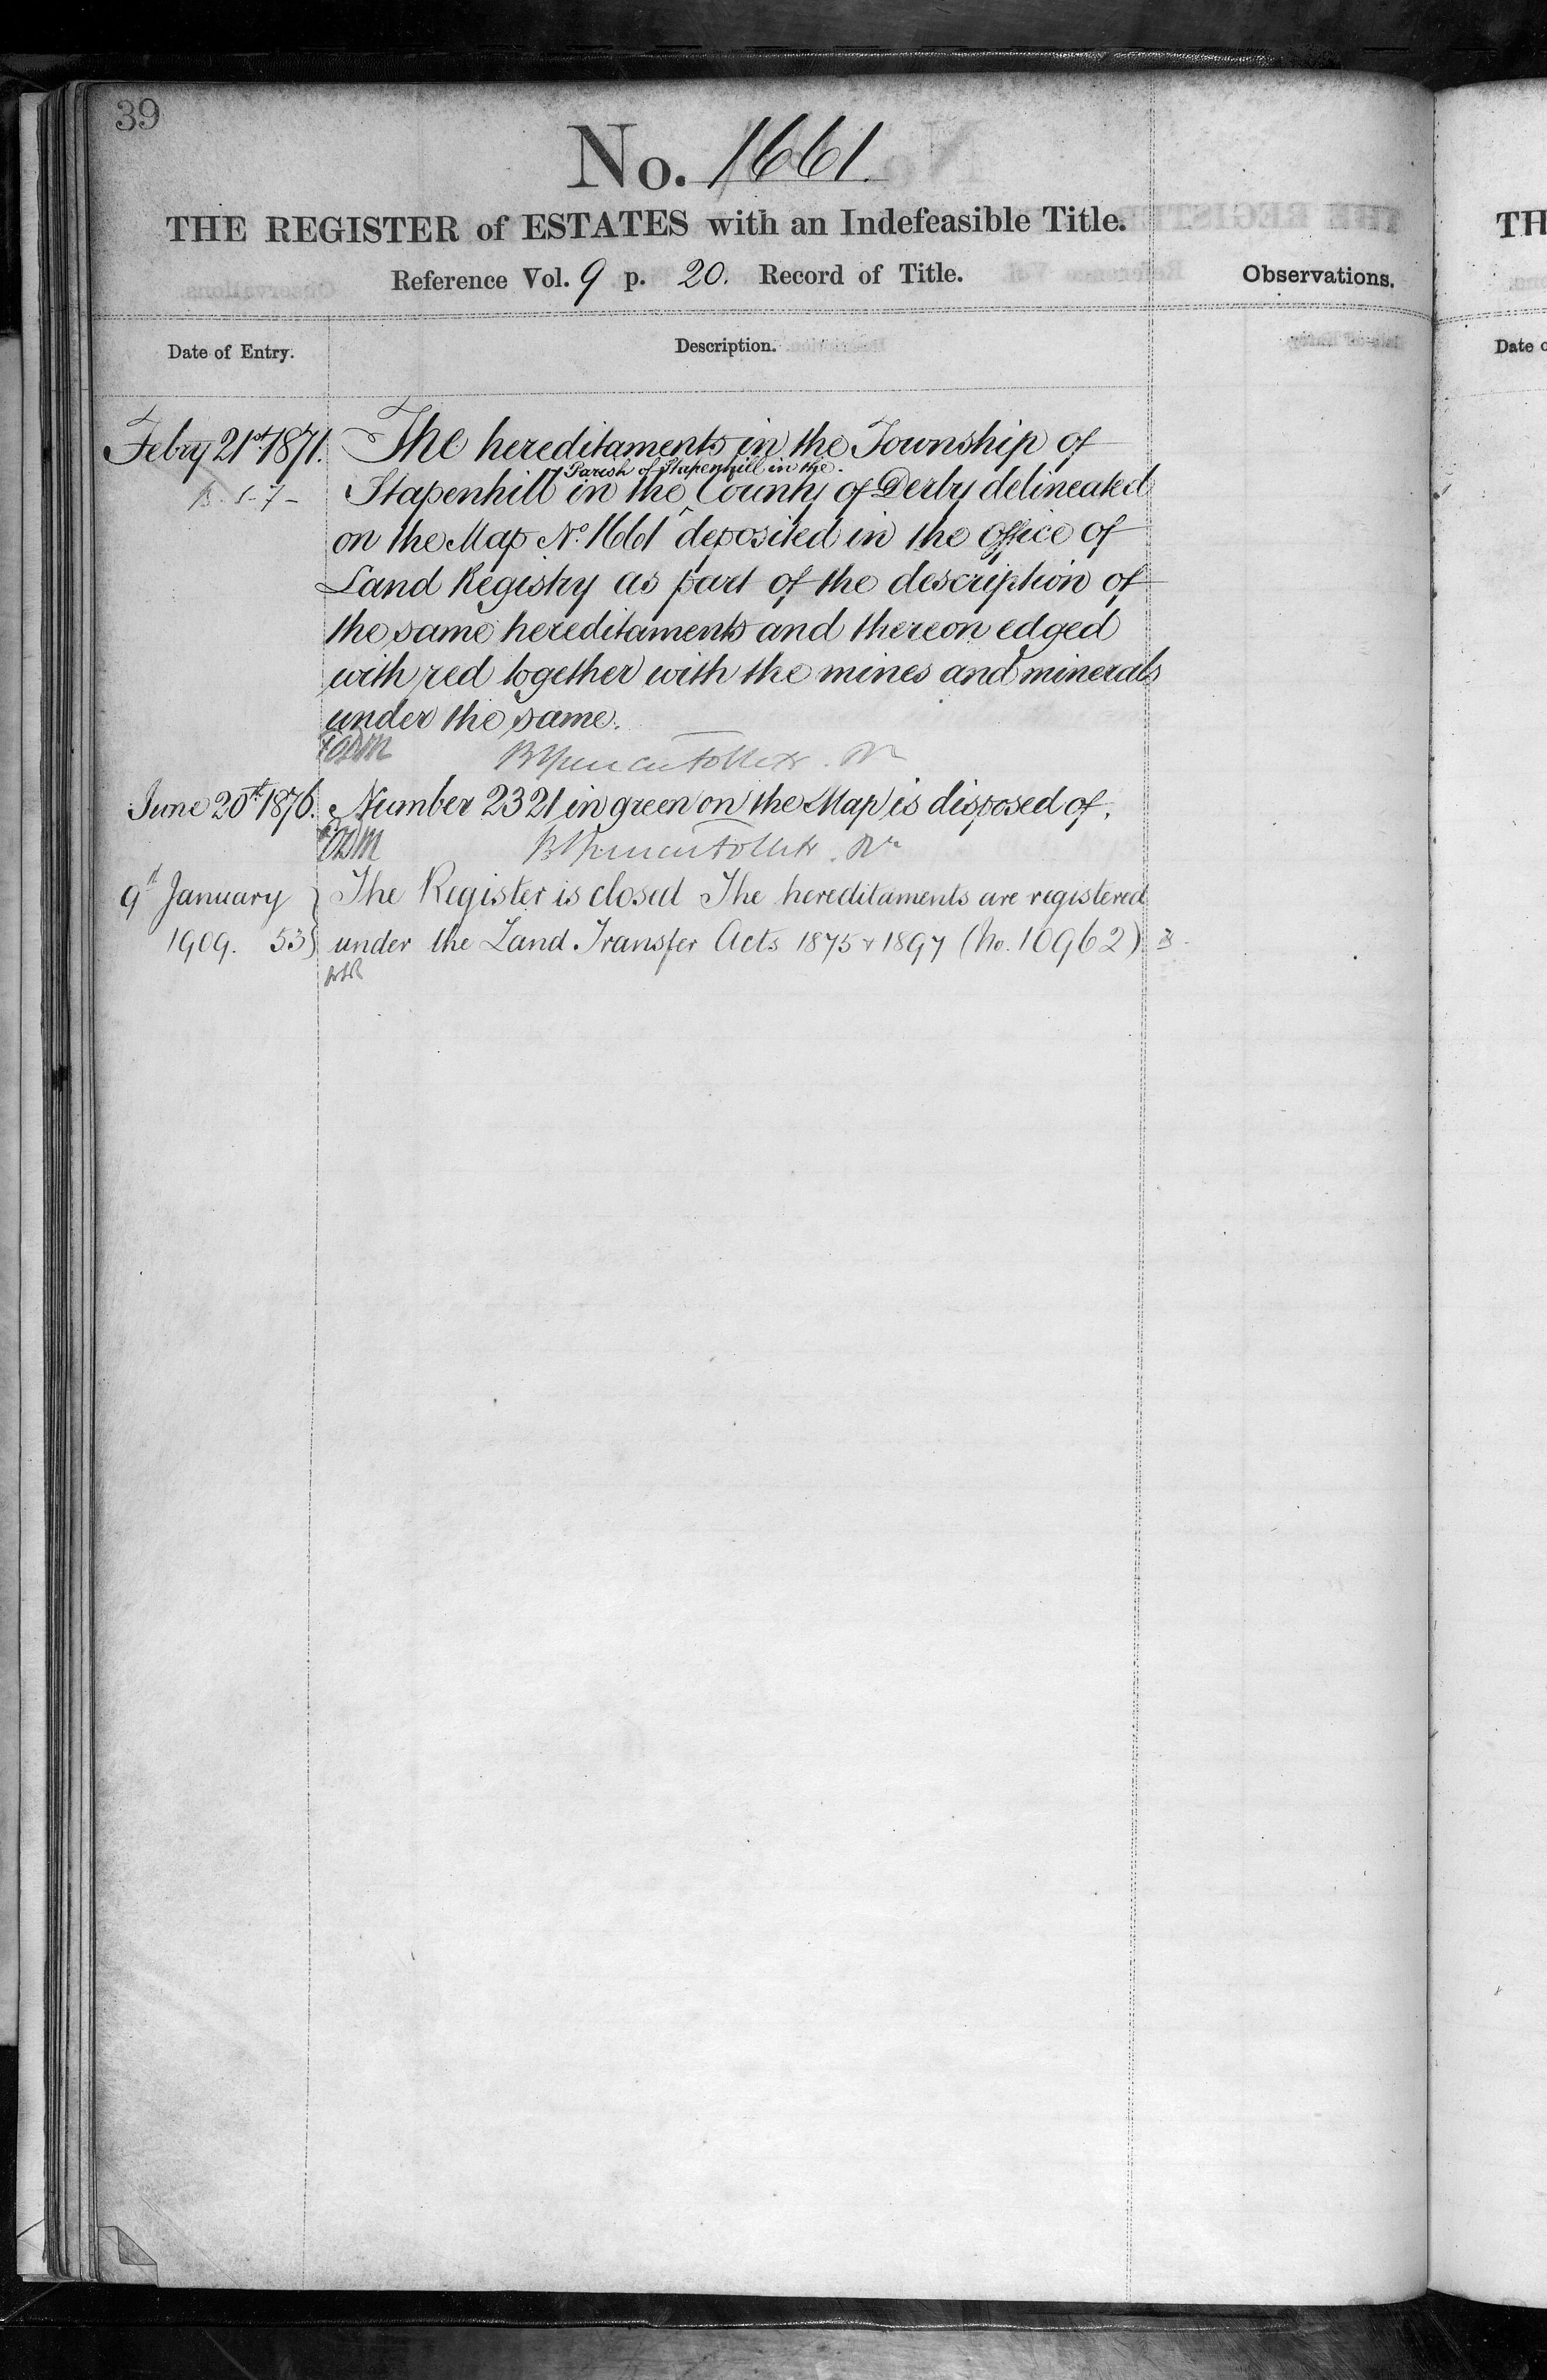 39
No. 1661.
THE REGISTER of ESTATES with an Indefeasible Title.
Reference Vol. 9 p. 20. Record of Title.
Observations.
Date of Entry.
Description.
Febry 21st 1871. The hereditaments in the Township of
Parish of Stapenhill in the
Stapenhill in the County of Derby delineated
on the Map No. 1661 deposited in the Office of
Land Registry as part of the description of
the same hereditaments and thereon edged
with red together with the mines and minerals
under the same.
June 20th 1876. Number 2321 in green on the Map is disposed of.
9th January The Register is closed The hereditaments are registered
1909. 53 under the Land Transfer Acts 1875 & 1897 (No. 10962)
TH
Date o